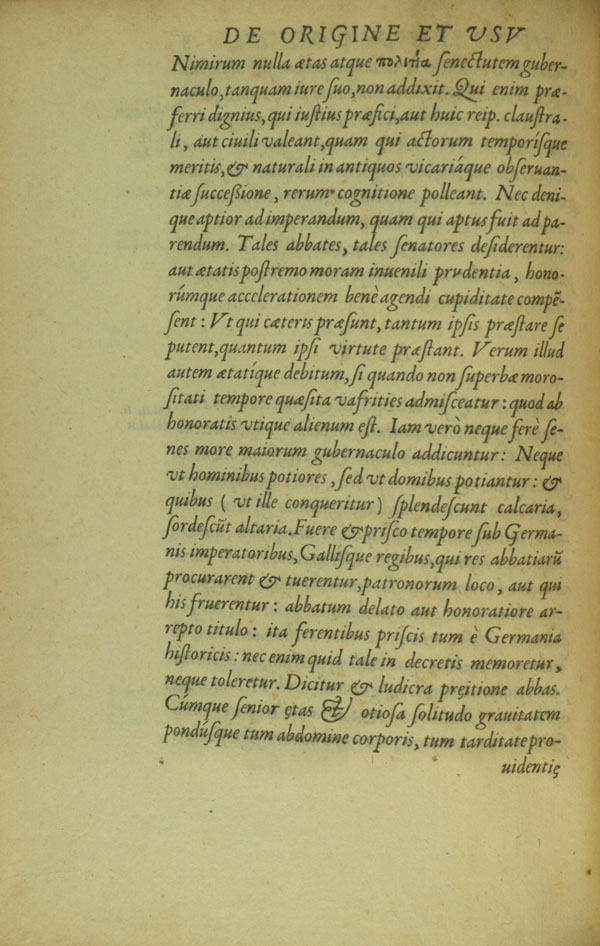 DE ORIGINE ET VSV
Nimirum nulla ætas atque πολιτεία ſenectutem guber-
naculo, tanquam iure ſuo, non addixit. Qui enim præ-
ferri dignius, qui iuſtius præfici, aut huic reip. clauſtra-
li, aut ciuili valeant, quam qui actorum temporíſque
meritis, & naturali in antiquos vicariáque obſeruan-
tiæ ſucceßione, rerum cognitione polleant. Nec deni-
que aptior ad imperandum, quam qui aptus fuit ad pa-
rendum. Tales abbates, tales ſenatores deſiderentur:
aut ætatis poſtremo moram inuenili prvdentia, hono-
rúmque accelerationem benè agendi cupiditate compẽ-
ſent: Vt qui cæteris præſunt, tantum ipſis præſtare ſe
putent, quantum ipſi virtute præſtant. Verum illud
autem ætatique debitum, ſi quando non ſuperbæ moro-
ſitati tempore quæſita vafrities admiſceatur: quod ab
honoratis vtique alienum eſt. Iam verò neque ferè ſe-
nes more maiorum gubernaculo addicuntur: Neque
vt hominibus potiores, ſed vt domibus potiantur: &
quibus ( vt ille conqueritur ) ſplendeſcunt calcaria,
ſordeſcũt altaria. Fuere & priſco tempore ſub Germa-
nis imperatoribus, Galliſque regibus, qui res abbatiarũ
procurarent & tuerentur, patronorum loco, aut qui
his fruerentur: abbatum delato aut honoratiore ar-
repto titulo: ita ferentibus priſcis tum è Germania
hiſtoricis: nec enim quid tale in decretis memoretur,
neque toleretur. Dicitur & ludicra pręitione abbas.
Cúmque ſenior ętas & otioſa ſolitudo grauitatem
pondúſque tum abdomine corporis, tum tarditate pro-
uidentię